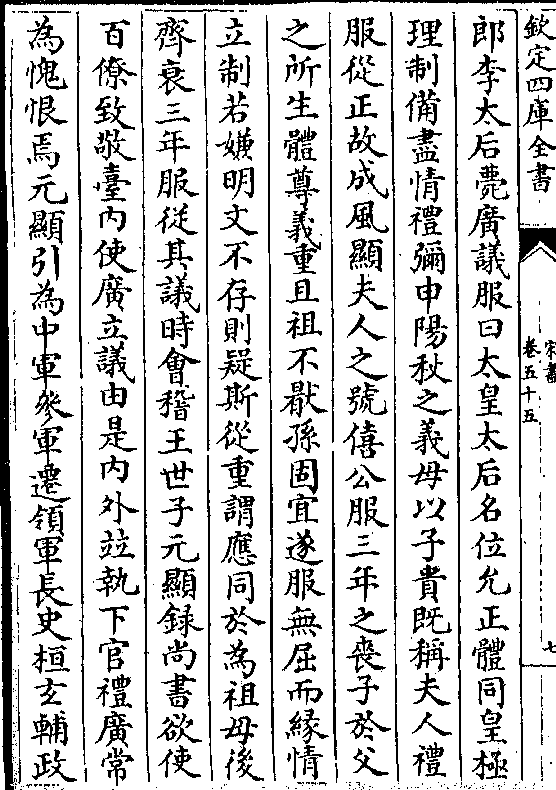 欽定四庫全書
宋書
卷五十五
七
郎李太后薨廣議服曰太皇太后名位允正體同皇極
理制備盡情禮彌申陽秋之義母以子貴既稱夫人禮
服從正故成風顯夫人之號僖公服三年之喪子於父
之所生體尊義重且祖不猒孫固宜遂服無屈而緣情
立制若嫌明文不存則疑斯從重謂應同於為祖母後
齊衰三年服從其議時會稽王世子元顯録尚書欲使
百僚致敬臺内使廣立議由是内外竝執下官禮廣常
為愧恨焉元顯引為中軍參軍遷領軍長史桓玄輔政